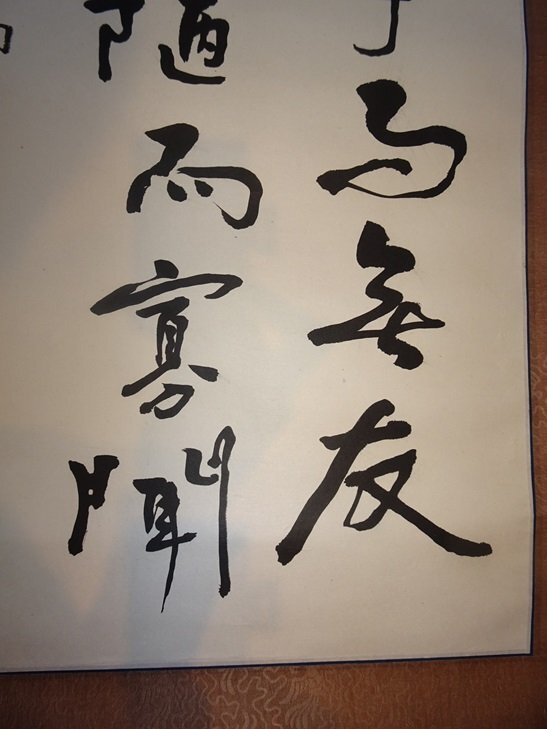 而無友
陋而寡聞